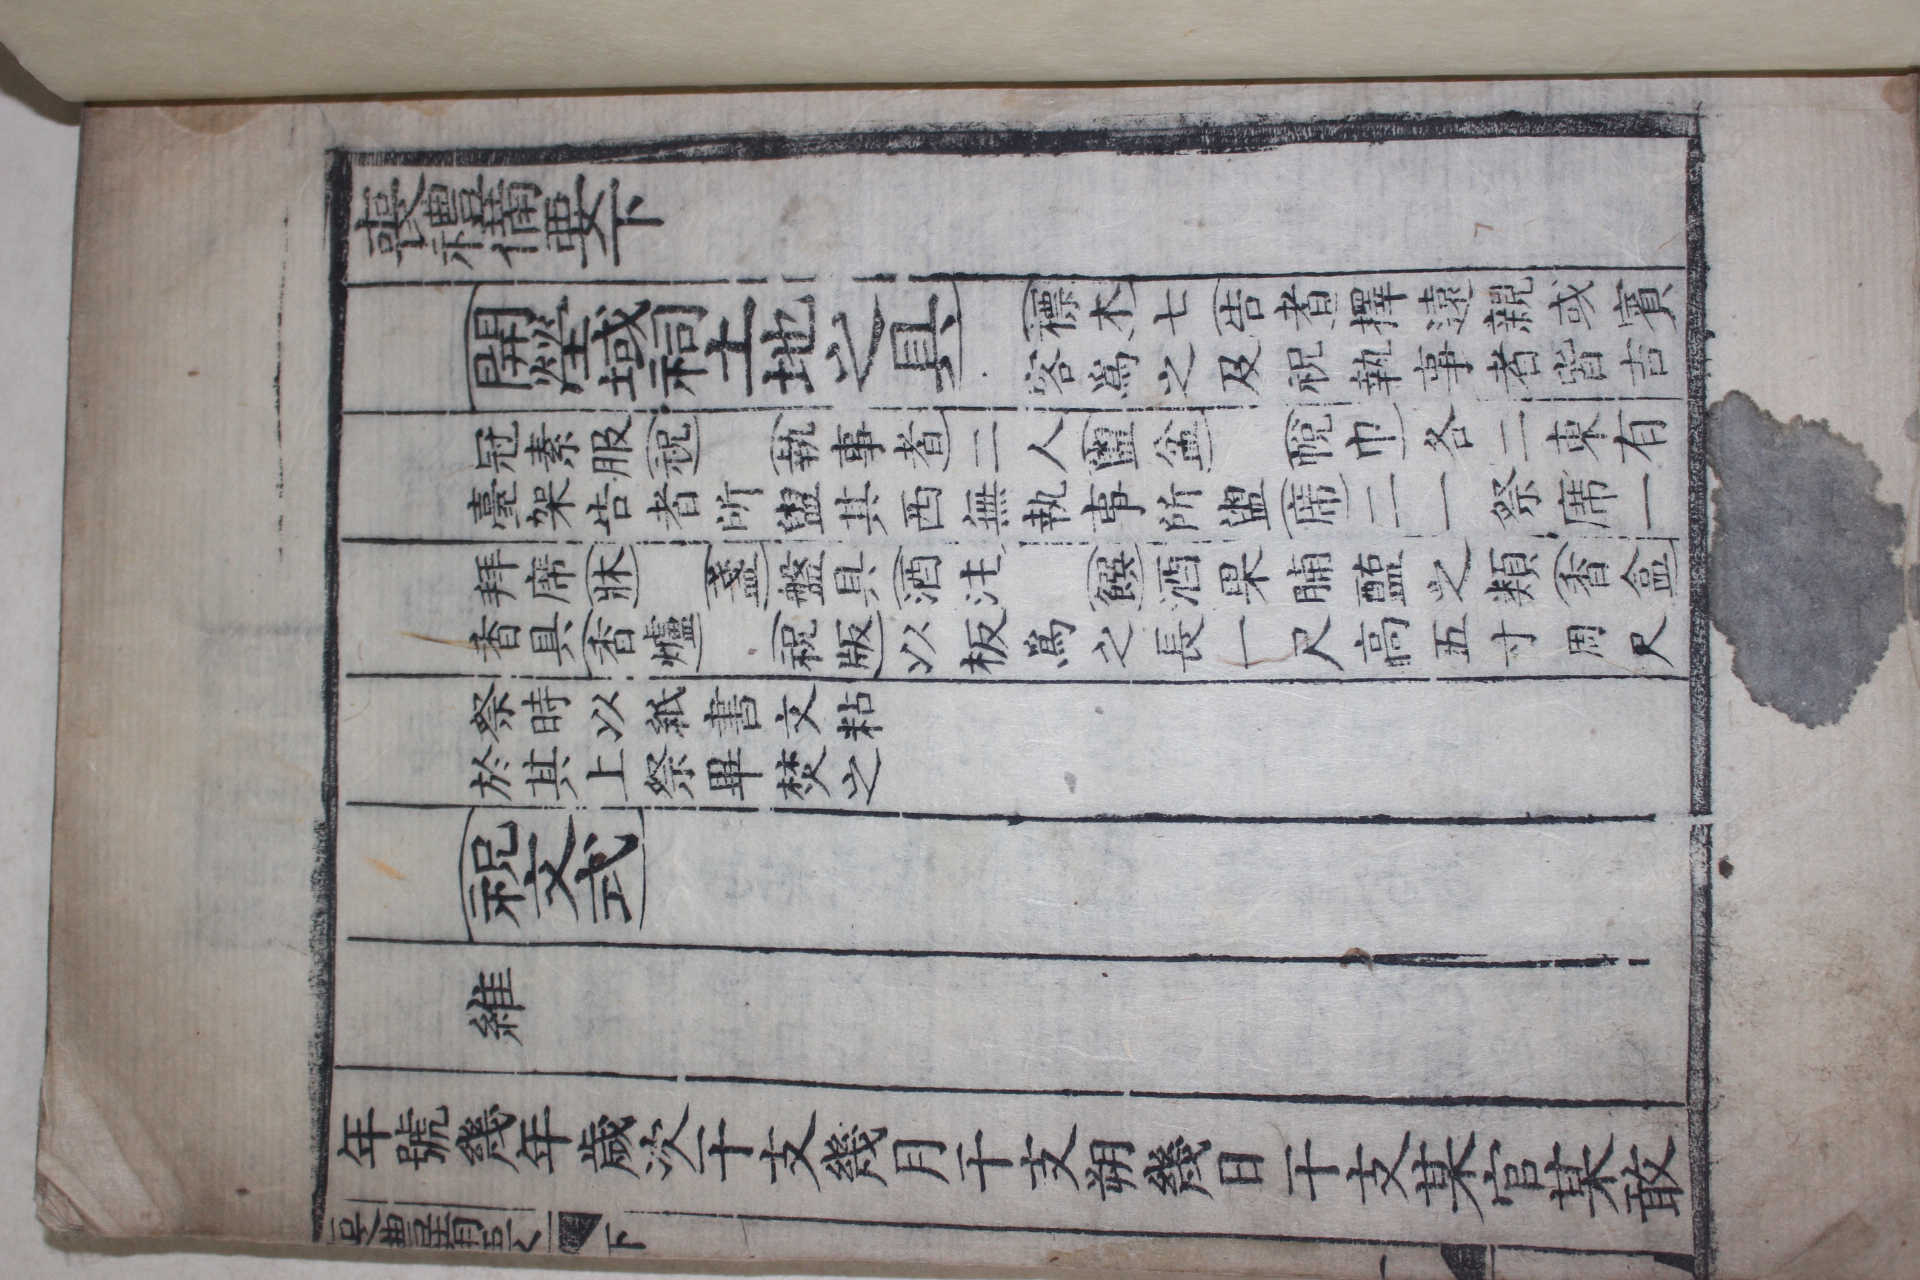 喪禮備要下
開塋域祠土地之具
標木七告者擇遠親或賓
客爲之及祝執事者皆吉
冠素服祝 執事者二人盥盆 帨巾各二東有
臺架告者所盥其西無執事所盥席二一祭席一
拜席牀 盞盤具酒注 饌酒果脯醢之類香盒
香具香爐 祝版以板爲之長一尺高五寸周尺
祭時以紙書文粘
於其上祭畢焚之
祝文式
維
年號幾年歲次干支幾月干支朔幾日干支某官某敢
喪禮備要 下 一